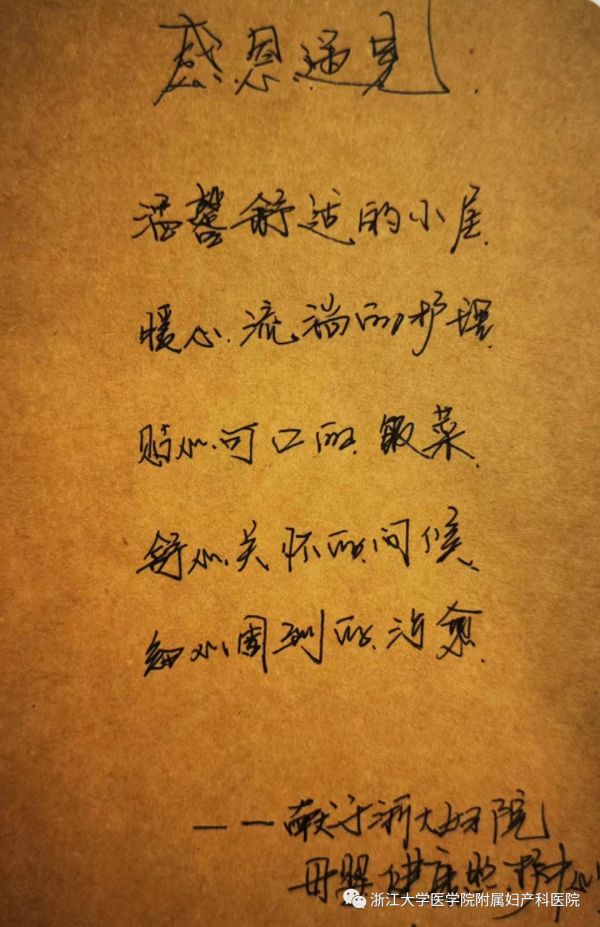 感恩遇见
温馨舒适的小屋
暖心流淌的护理
贴心可口的饭菜
舒心关怀的问候
细心周到的治愈
——献于浙大妇院
母婴健康照护中心
浙江大学医学院附属妇产科医院